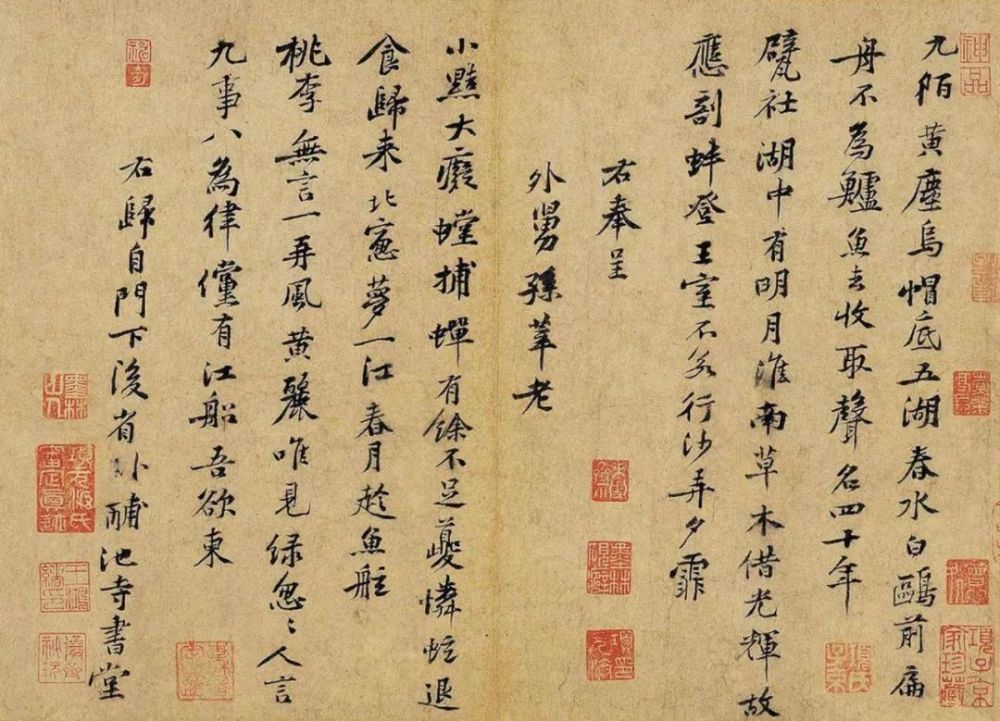 九陌黃塵烏帽底五湖春水白鷗前扁
舟不為鱸魚去收取聲名四十年
甓社湖中有明月淮南草木借光輝故
應剖蚌登王室不若行沙弄夕霏
右奉呈
外舅孫莘老
小黠大癡螳捕蟬有餘不足夔憐蚿退
食歸來北窻夢一江春月趁魚舡
桃李無言一再風黃麗唯見綠怱〻人言
九事八為律儻有江船吾欲東
右歸自門下後省卧酺池寺書堂
神品
項子京家珍藏
墨林山人
項元汴氏審定真跡